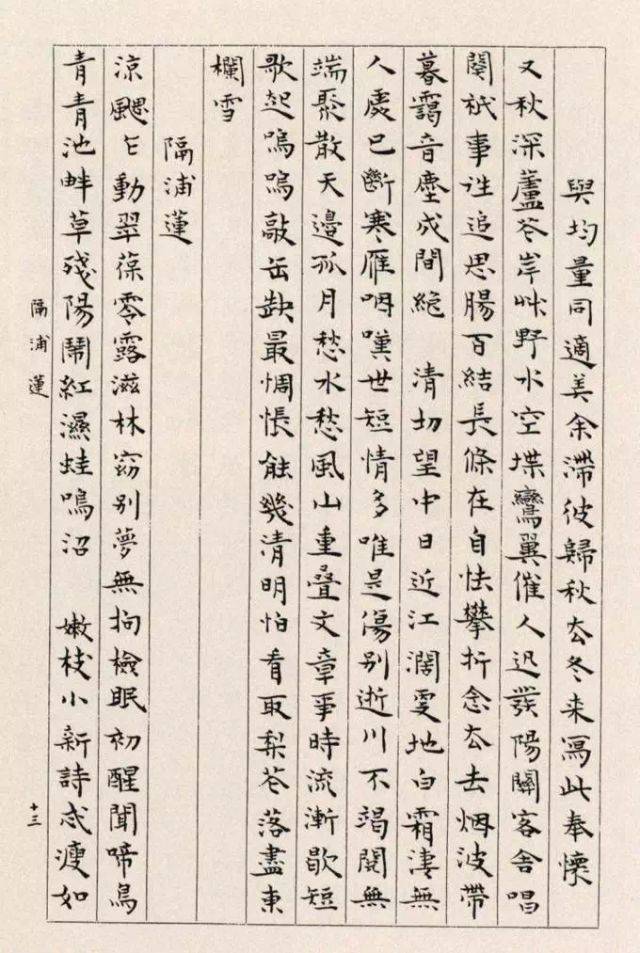 與均量同適美余滯彼歸秋去冬来寫此奉懷
又秋深蘆花岸艸野水空堞鸞翼催人迟發陽關客舍唱
闋祇事往追思腸百結長條在自怯攀折念厺去烟波帶
暮靄音塵成間絶　清切望中日近江濶雯地白霜淒無
人處已斷寒雁咽嘆世短情多唯是傷別逝川不竭閑無
端聚散天邊孤月愁水愁風山重疊文章事時流漸歇短
歌起嗚嗚敲缶缺最惆悵能幾清明怕看取梨花落盡東
欄雪
隔浦蓮
涼颸乍動翠葆零露滋林窈別夢無拘檢眠初醒聞啼鳥
青青池畔草殘陽鬧紅濕蛙鳴沼　嫩枝小新詩忒瘦如
隔浦蓮
十三